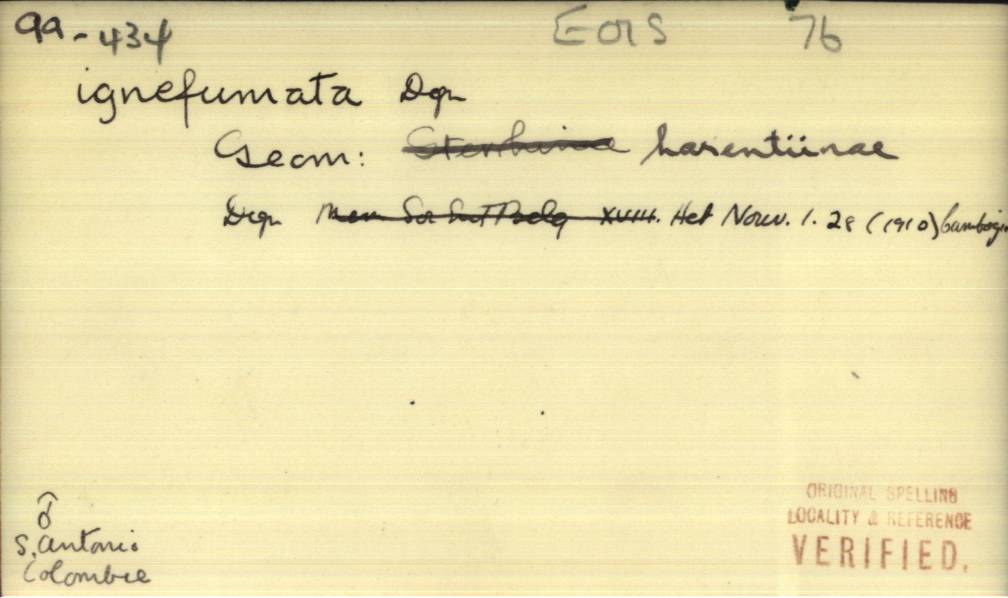 99-434 EOIS 76
ignefumata Dgn
Geom: Sterrhinae Larentiinae
Dgn Mem Soc Ent Belg XVIII. Het Nouv. 1. 28 (1910) Cambogi
♂
S. Antonio
Colombie
ORIGINAL SPELLING
LOCALITY & REFERENCE
VERIFIED.